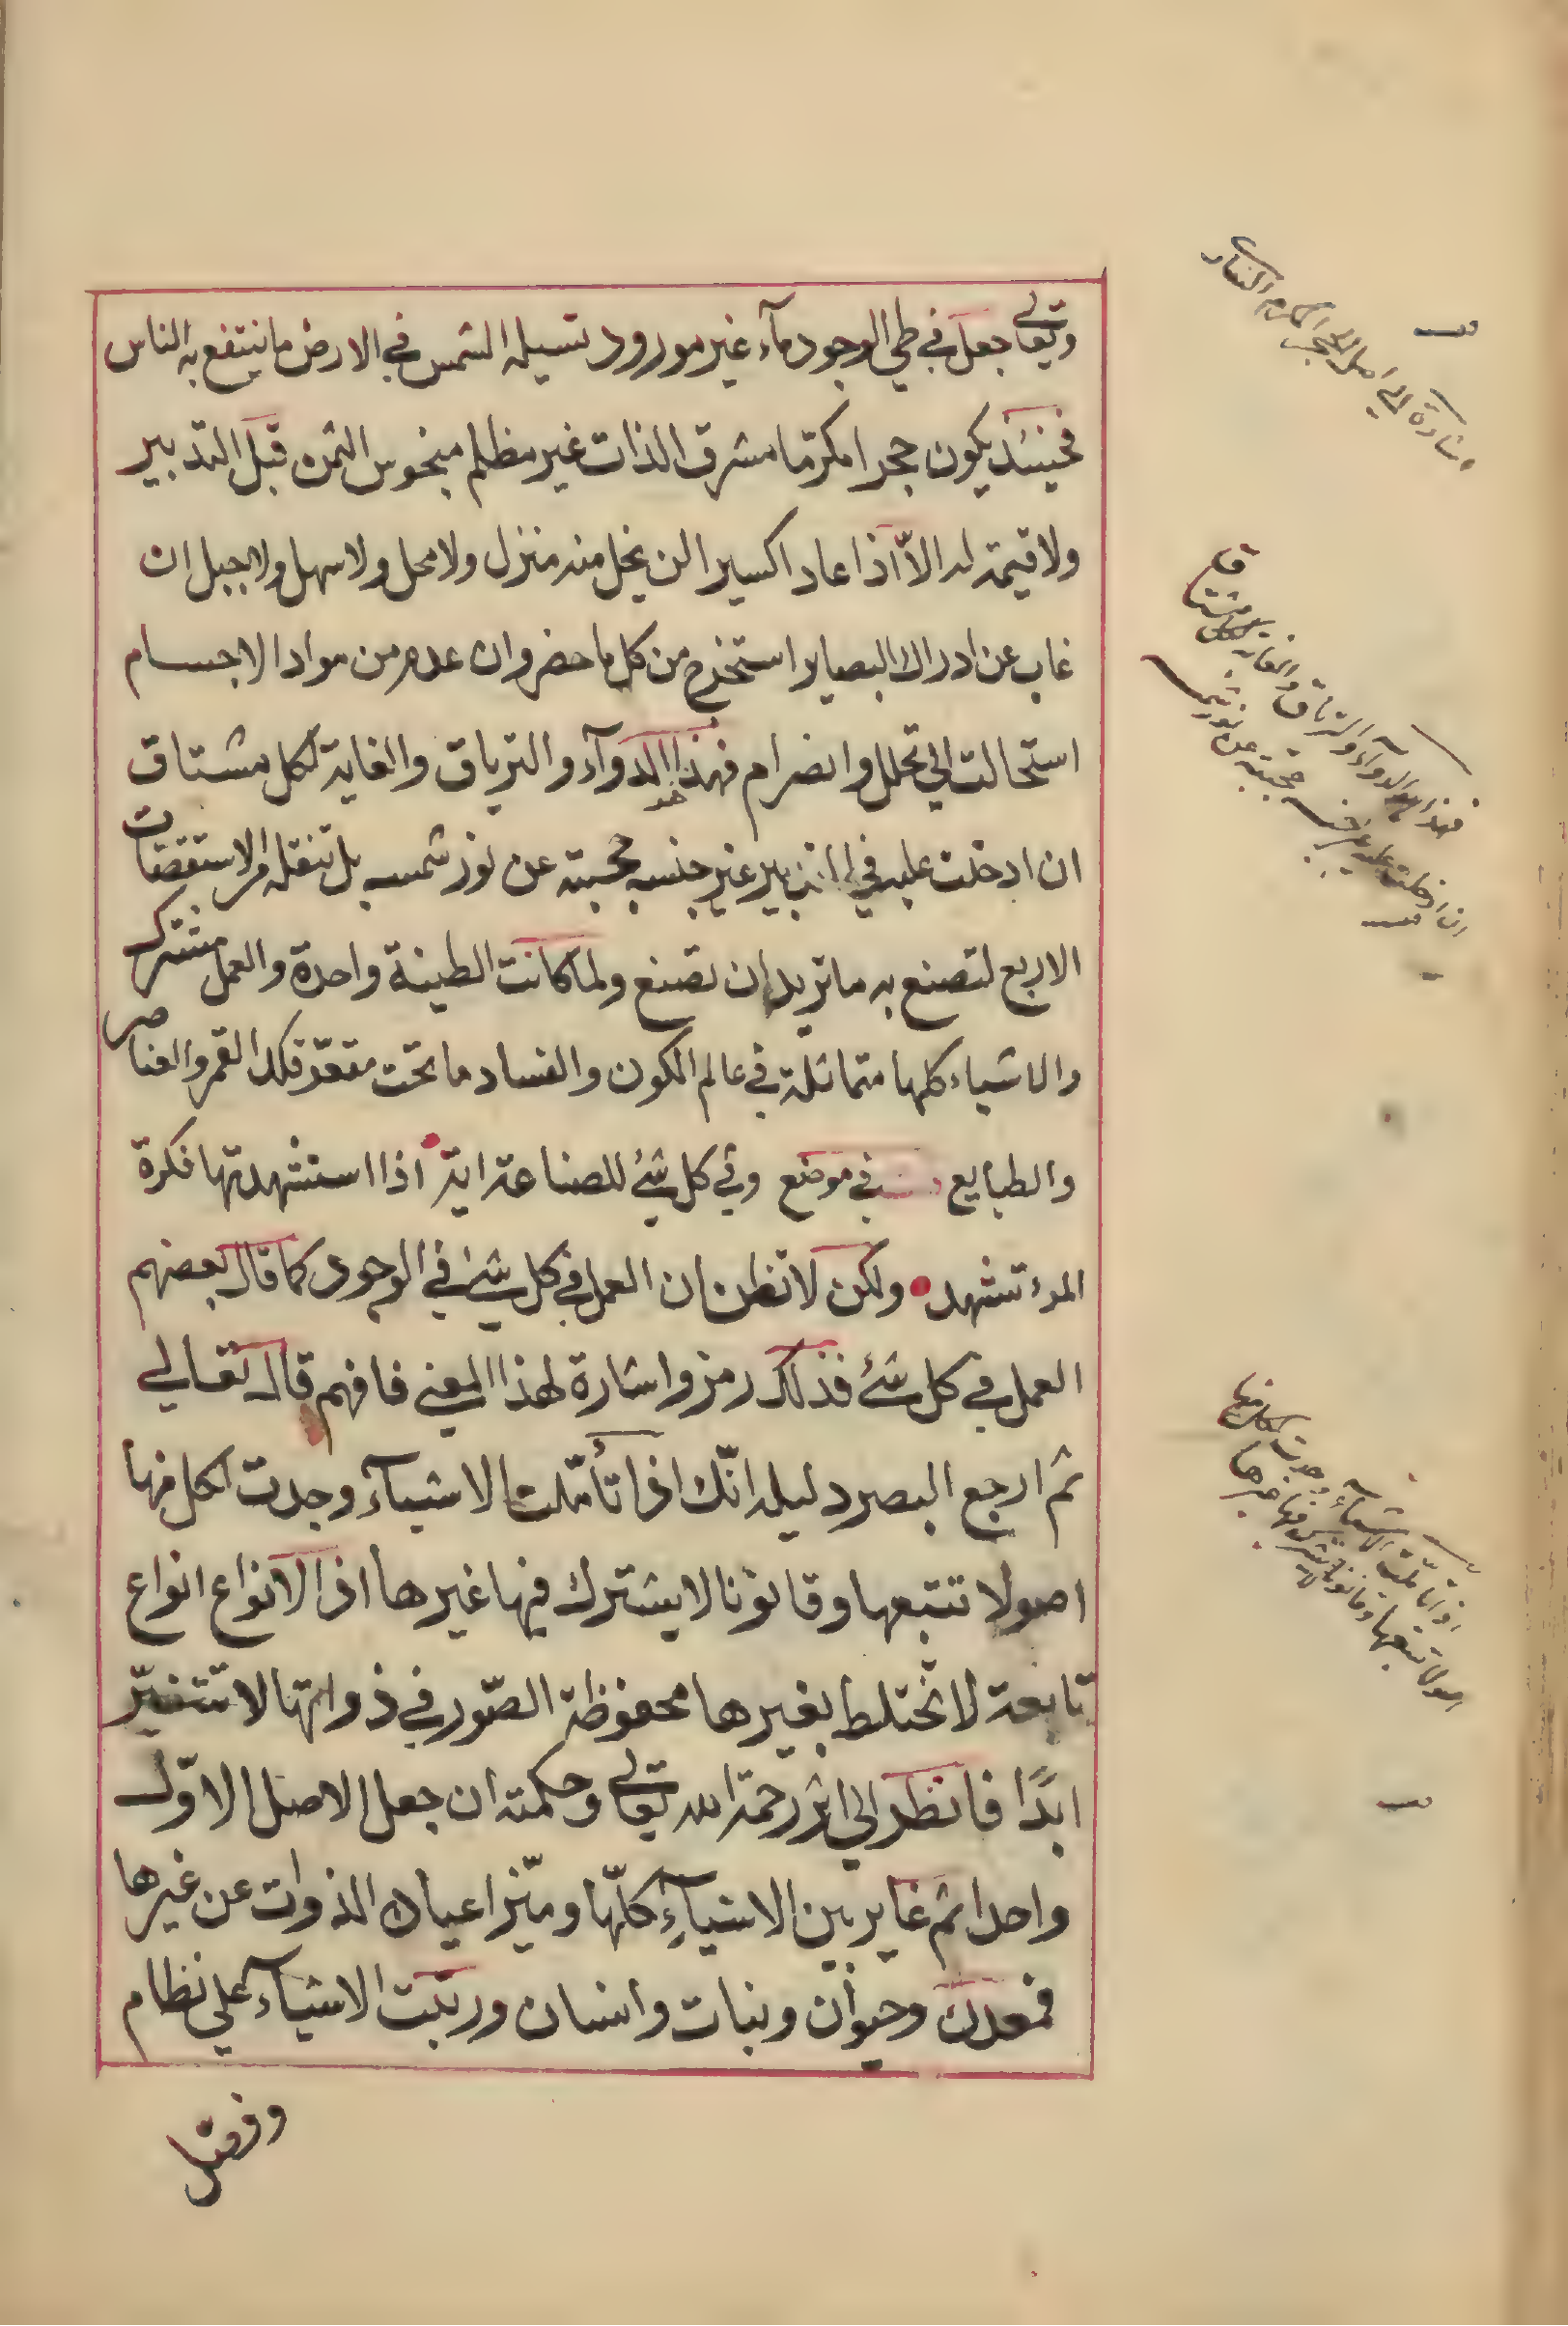 وتعالى جعل في طي الوجود مآء غير مورود تسيله الشمس في الارض ما ينتفع به الناس
فحينئذ يكون حجرا مكرّما مشرق الذات غير مظلم منحوس الثمن قبل التدبير
ولا قيمة له الاّ اذا عاد اكسيرا لن يخل منه منزل ولا محل ولا سهل ولا جبل ان
غاب عن ادراك البصاير استخرج من كل ما حضر وان عدم من مواد الاجسام
استحالت الي تحلل وانضرام فهذا الدوآء والترياق والغاية لكل مشتاق
ان ادخلت عليه في غير جنسه حجبته عن نور شمسه بل تنقله الاستقصات
الاربع لتصنع به ما تريد ان تصنع ولما كانت الطينة واحدة والعمل مشترك
والاشياء كلها متماثلة في عالم الكون والفساد ما تحت مقعّر فلك القمر والعناصر
والطبايع في موضع وفي كل شئ للصناعة اية اذا استشهدتها فكرة
المرء تشهد ولكن لا تظن ان العمل في كل شئ في الوجود كما قال بعضهم
العمل في كل شئ فذلك رمز واشارة لهذا المعني فافهم قال تعالي
ثم ارجع البصر دليله انّك اذا تأمّلت الاشيآء وجدت لكل منها
اصولا تتبعها وقانونا لا يشترك فيها غيرها اذ الانواع انواع
تابعة لا تختلط بغيرها محفوظة الصّور في ذواتها لا تتغيّر
ابدًا فانظر الي اثر رحمة الله تعالى وحكمته ان جعل الاصل الاوّل
واحدا ثم غاير بين الاشيآءِ كلّها وميّز اعيان الذوات عن غيرها
فمعدن وحيوان ونبات وانسان ورتّبت الاشيآء علي نظام
وفصّل
اشارة الي اصل الحجر المكرم
فهذا هو الدوآء والترياق والغاية لكل مشتاق
ان ادخلت عليه غير جنسه حجبته عن نور شمسه
اذا تأمّلت الاشيآء وجدت لكل منها
اصولا تتبعها وقانونا لا يشترك فيها غيرها